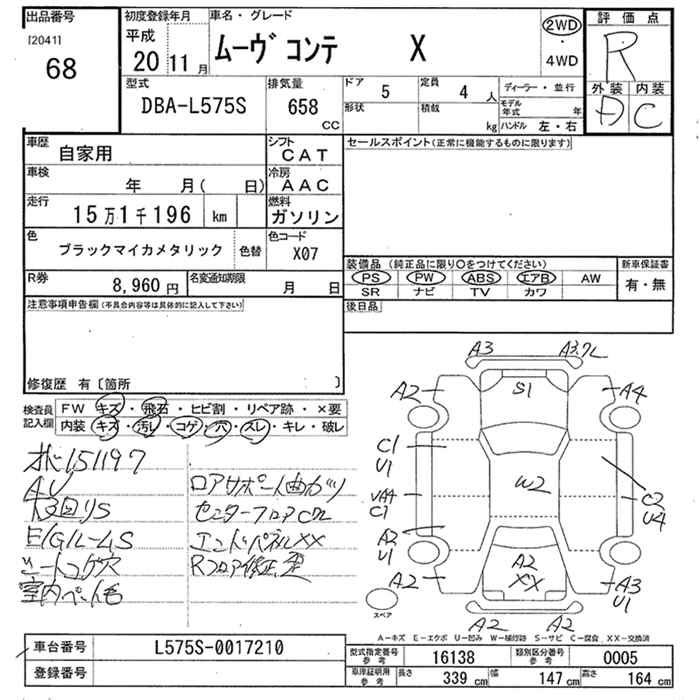 出品番号
[2041]
68
初度登録年月
平成
20 11月
車名・グレード
ムーヴ コンテ X
2WD
・
4WD
評価点
R
外装 内装
A C
型式
DBA-L575S
排気量
658 CC
ドア 5
定員 4 人
形状
積載 kg
ディーラー・並行
モデル年式 年
ハンドル 左・右
車歴
自家用
シフト
CAT
セールスポイント(正常に機能するものに限ります)
車検
年 月( 日)
冷房
AAC
走行
15万1千196 km
燃料
ガソリン
色
ブラックマイカメタリック
色替
色コード
X07
装備品 (純正品に限り○をつけてください)
新車保証書
PS PW ABS エアB AW
有・無
SR ナビ TV カワ
R券
8,960 円
名変通知期限
月 日
後日品
注意事項申告欄(不具合内容等は具体的に記入して下さい)
修復歴 有〔箇所 〕
検査員
記入欄
FW キズ・飛石・ヒビ割・リペア跡・×要
内装 キズ・汚レ・コゲ・穴・スレ・キレ・破レ
151197
AU
EIGルームS
シートコゲ穴
室内ペット毛
ロアサポート曲ガリ
センターフロアC
エンドパネルXX
Rフロア修正歪
A3
A3.7L
A2
S1
A4
C1
U1
W2
C2
U4
C1
A2
U1
A2
A2
XX
A3
U1
A2
A2
スペア
A-キズ E-エクボ U-凹み W-補修跡 S-サビ C-腐食 XX-交換済
車台番号
L575S-0017210
登録番号
型式指定番号
参考
16138
類別区分番号
参考
0005
車庫証明用
参考
長さ 339 cm
幅 147 cm
高さ 164 cm